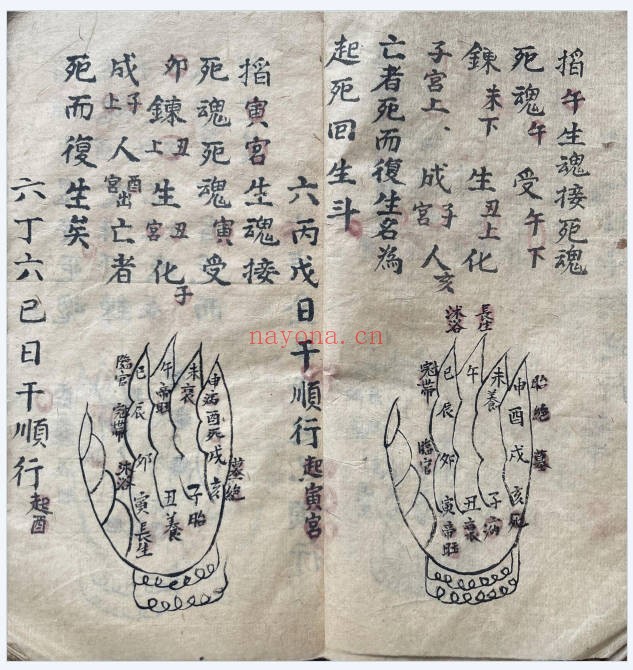 搯午生魂接死魂
死魂午受午下
鍊未下生丑上化
子宮上、成子宮人亥
亡者死而復生名為
起死回生斗
胎絕墓
申酉戌亥死
未養
子病
長生
午
丑衰
沐浴
巳辰卯寅帝旺
冠帶
臨官
六丙戊日干順行起寅宮
搯寅宮生魂接
死魂死魂寅受
卯鍊丑上生丑宮化子
成子上人酉宮出亡者
死而復生矣
墓絕
申病酉死戌亥
未衰
子胎
午帝旺
丑養
巳辰卯寅長生
臨官
冠帶
沐浴
六丁六巳日干順行起酉
nayona.cn